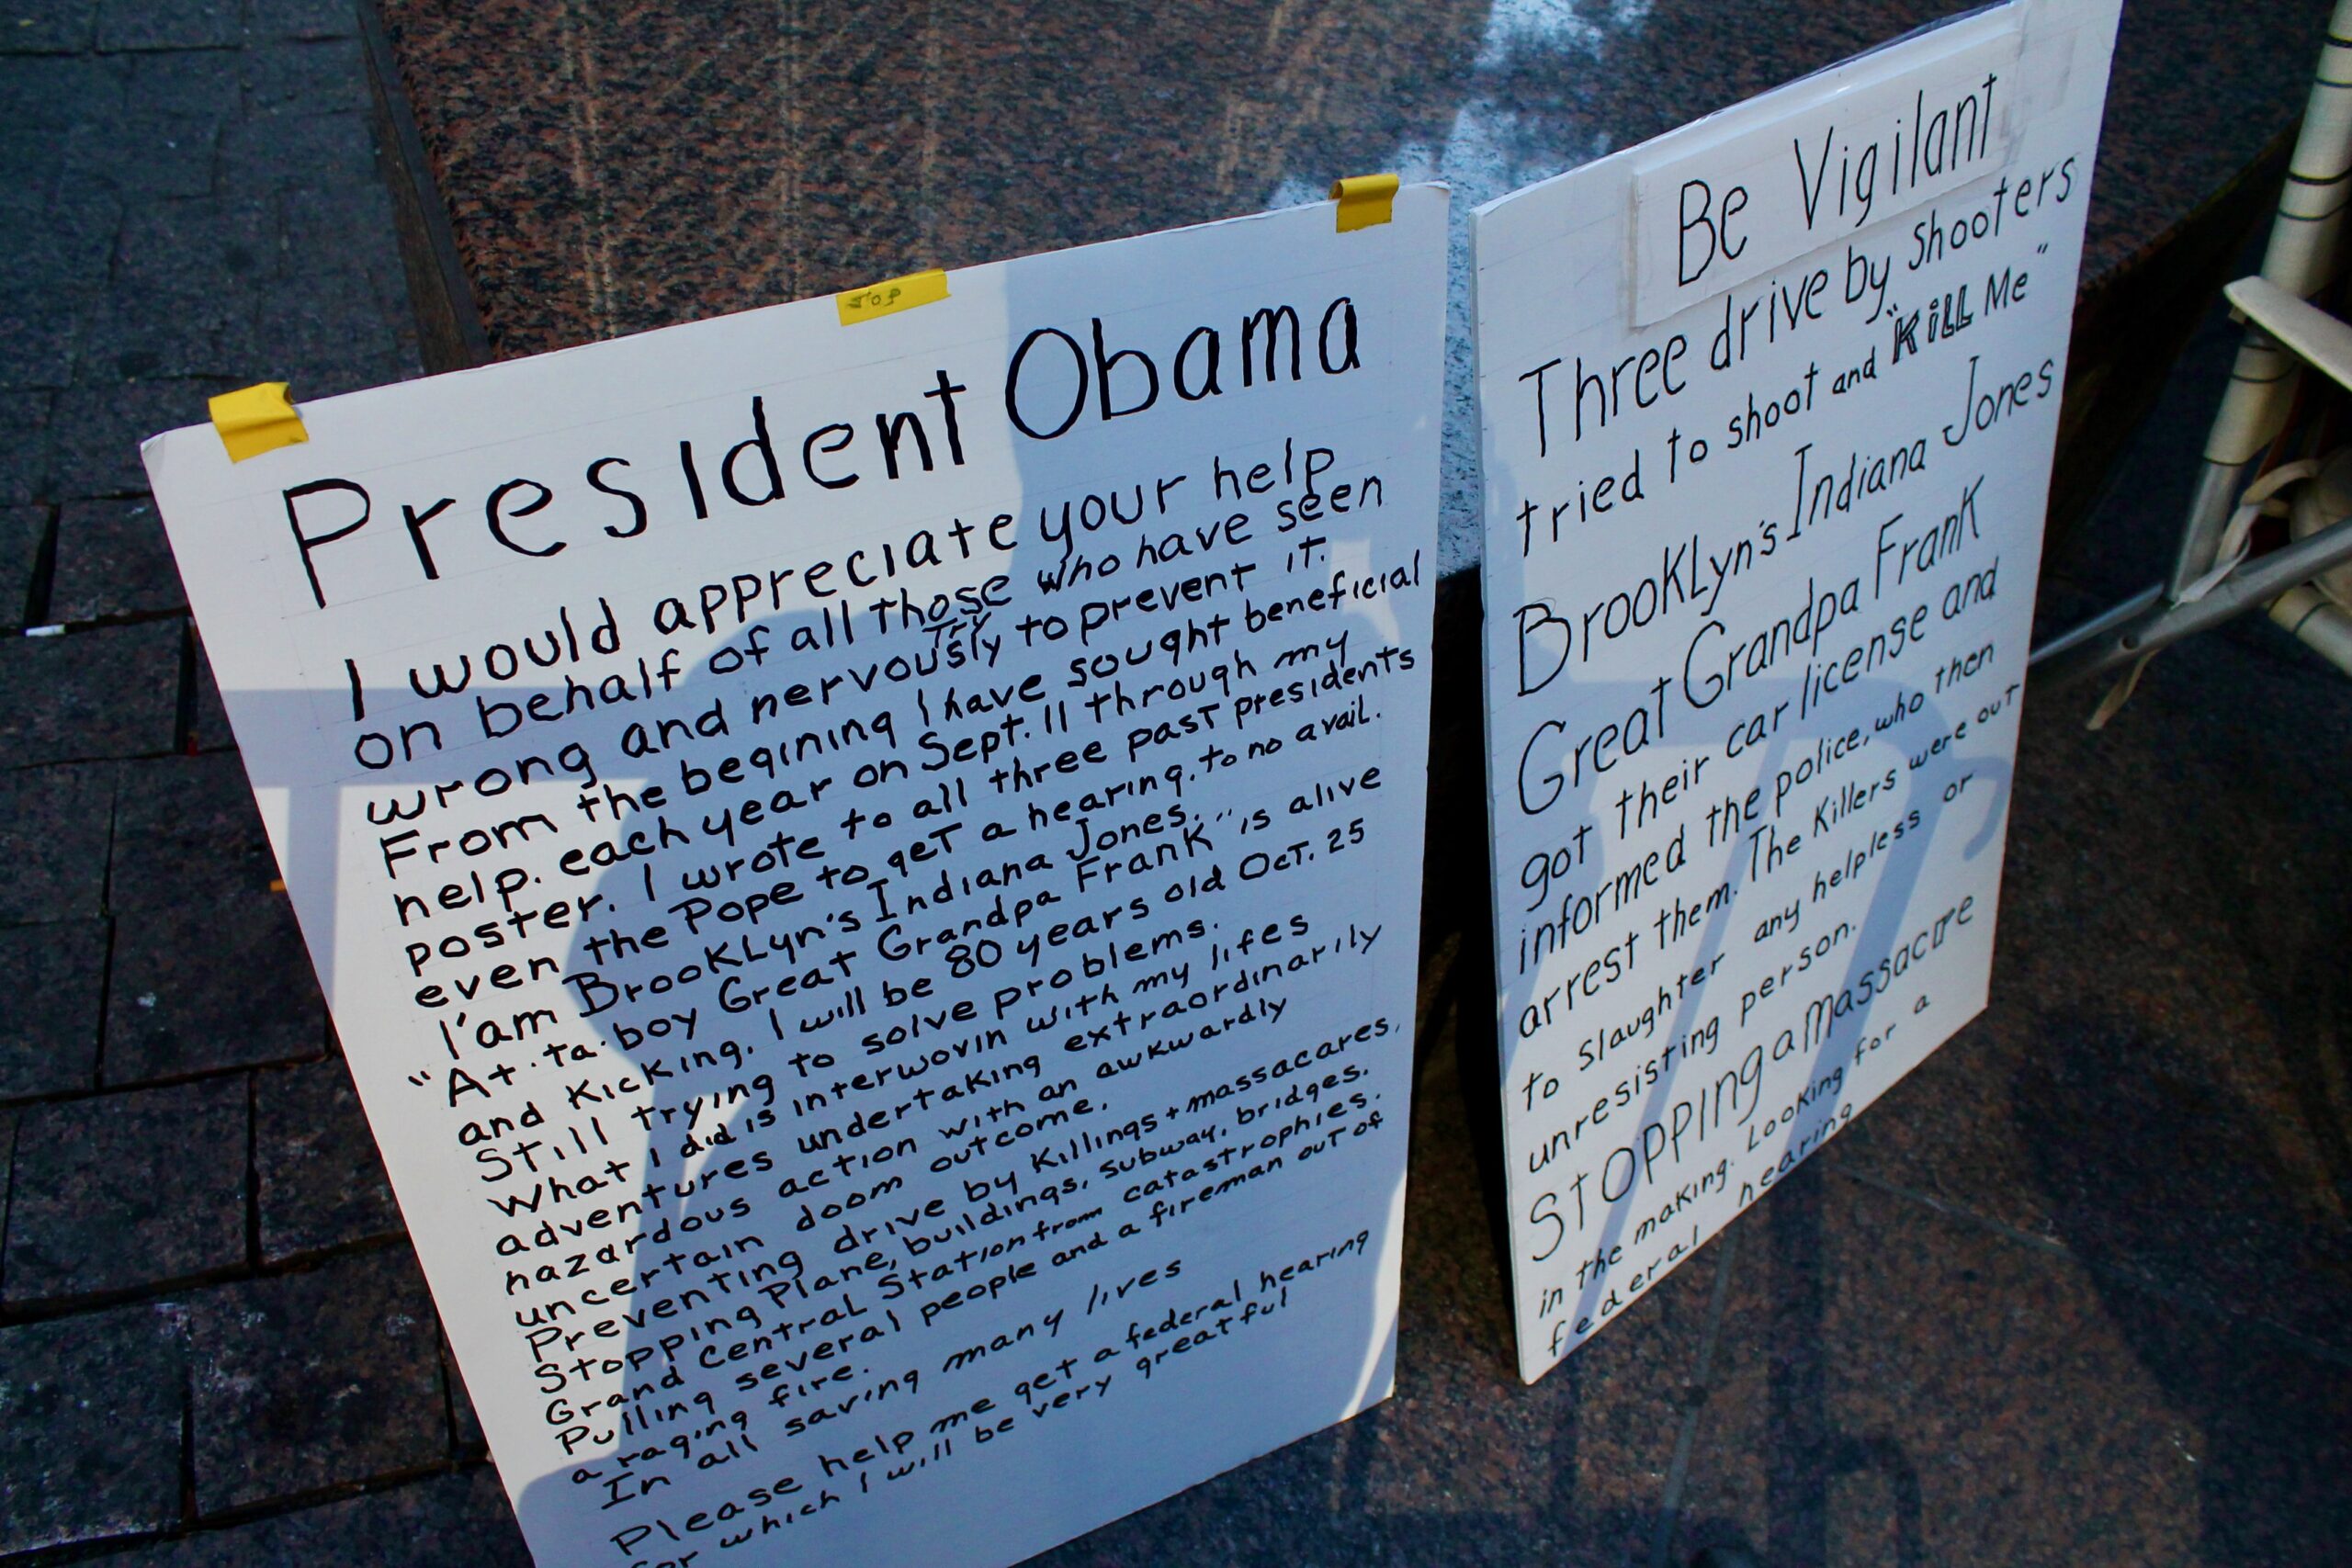 TOP
PresIdent Obama
I would appreciate your help
on behalf of all those who have seen
wrong and nervously try to prevent it.
From the begining I have sought beneficial
help. each year on Sept. 11 through my
poster. I wrote to all three past presidents
even the Pope to get a hearing. to no avail.
I'am BrooKLyn's Indiana Jones.
"At.ta.boy Great Grandpa Frank" is alive
and Kicking. I will be 80 years old Oct. 25
Still trying to solve problems.
What I did is interwovin with my lifes
adventures undertaking extraordinarily
hazardous action with an awkwardly
uncertain doom outcome.
Preventing drive by Killings + massacares,
Stopping Plane, buildings, subway, bridges.
Grand Central Station from catastrophies.
Pulling several people and a fireman out of
a raging fire.
In all saving many lives
Please help me get a federal hearing
for which I will be very greatful
Be Vigilant
Three drive by shooters
tried to shoot and "KiLL Me"
BrooKLyn's Indiana Jones
Great Grandpa Frank
got their car license and
informed the police, who then
arrest them. The Killers were out
to slaughter any helpless or
unresisting person.
STOPPING a massacre
in the making. Looking for a
federal hearing